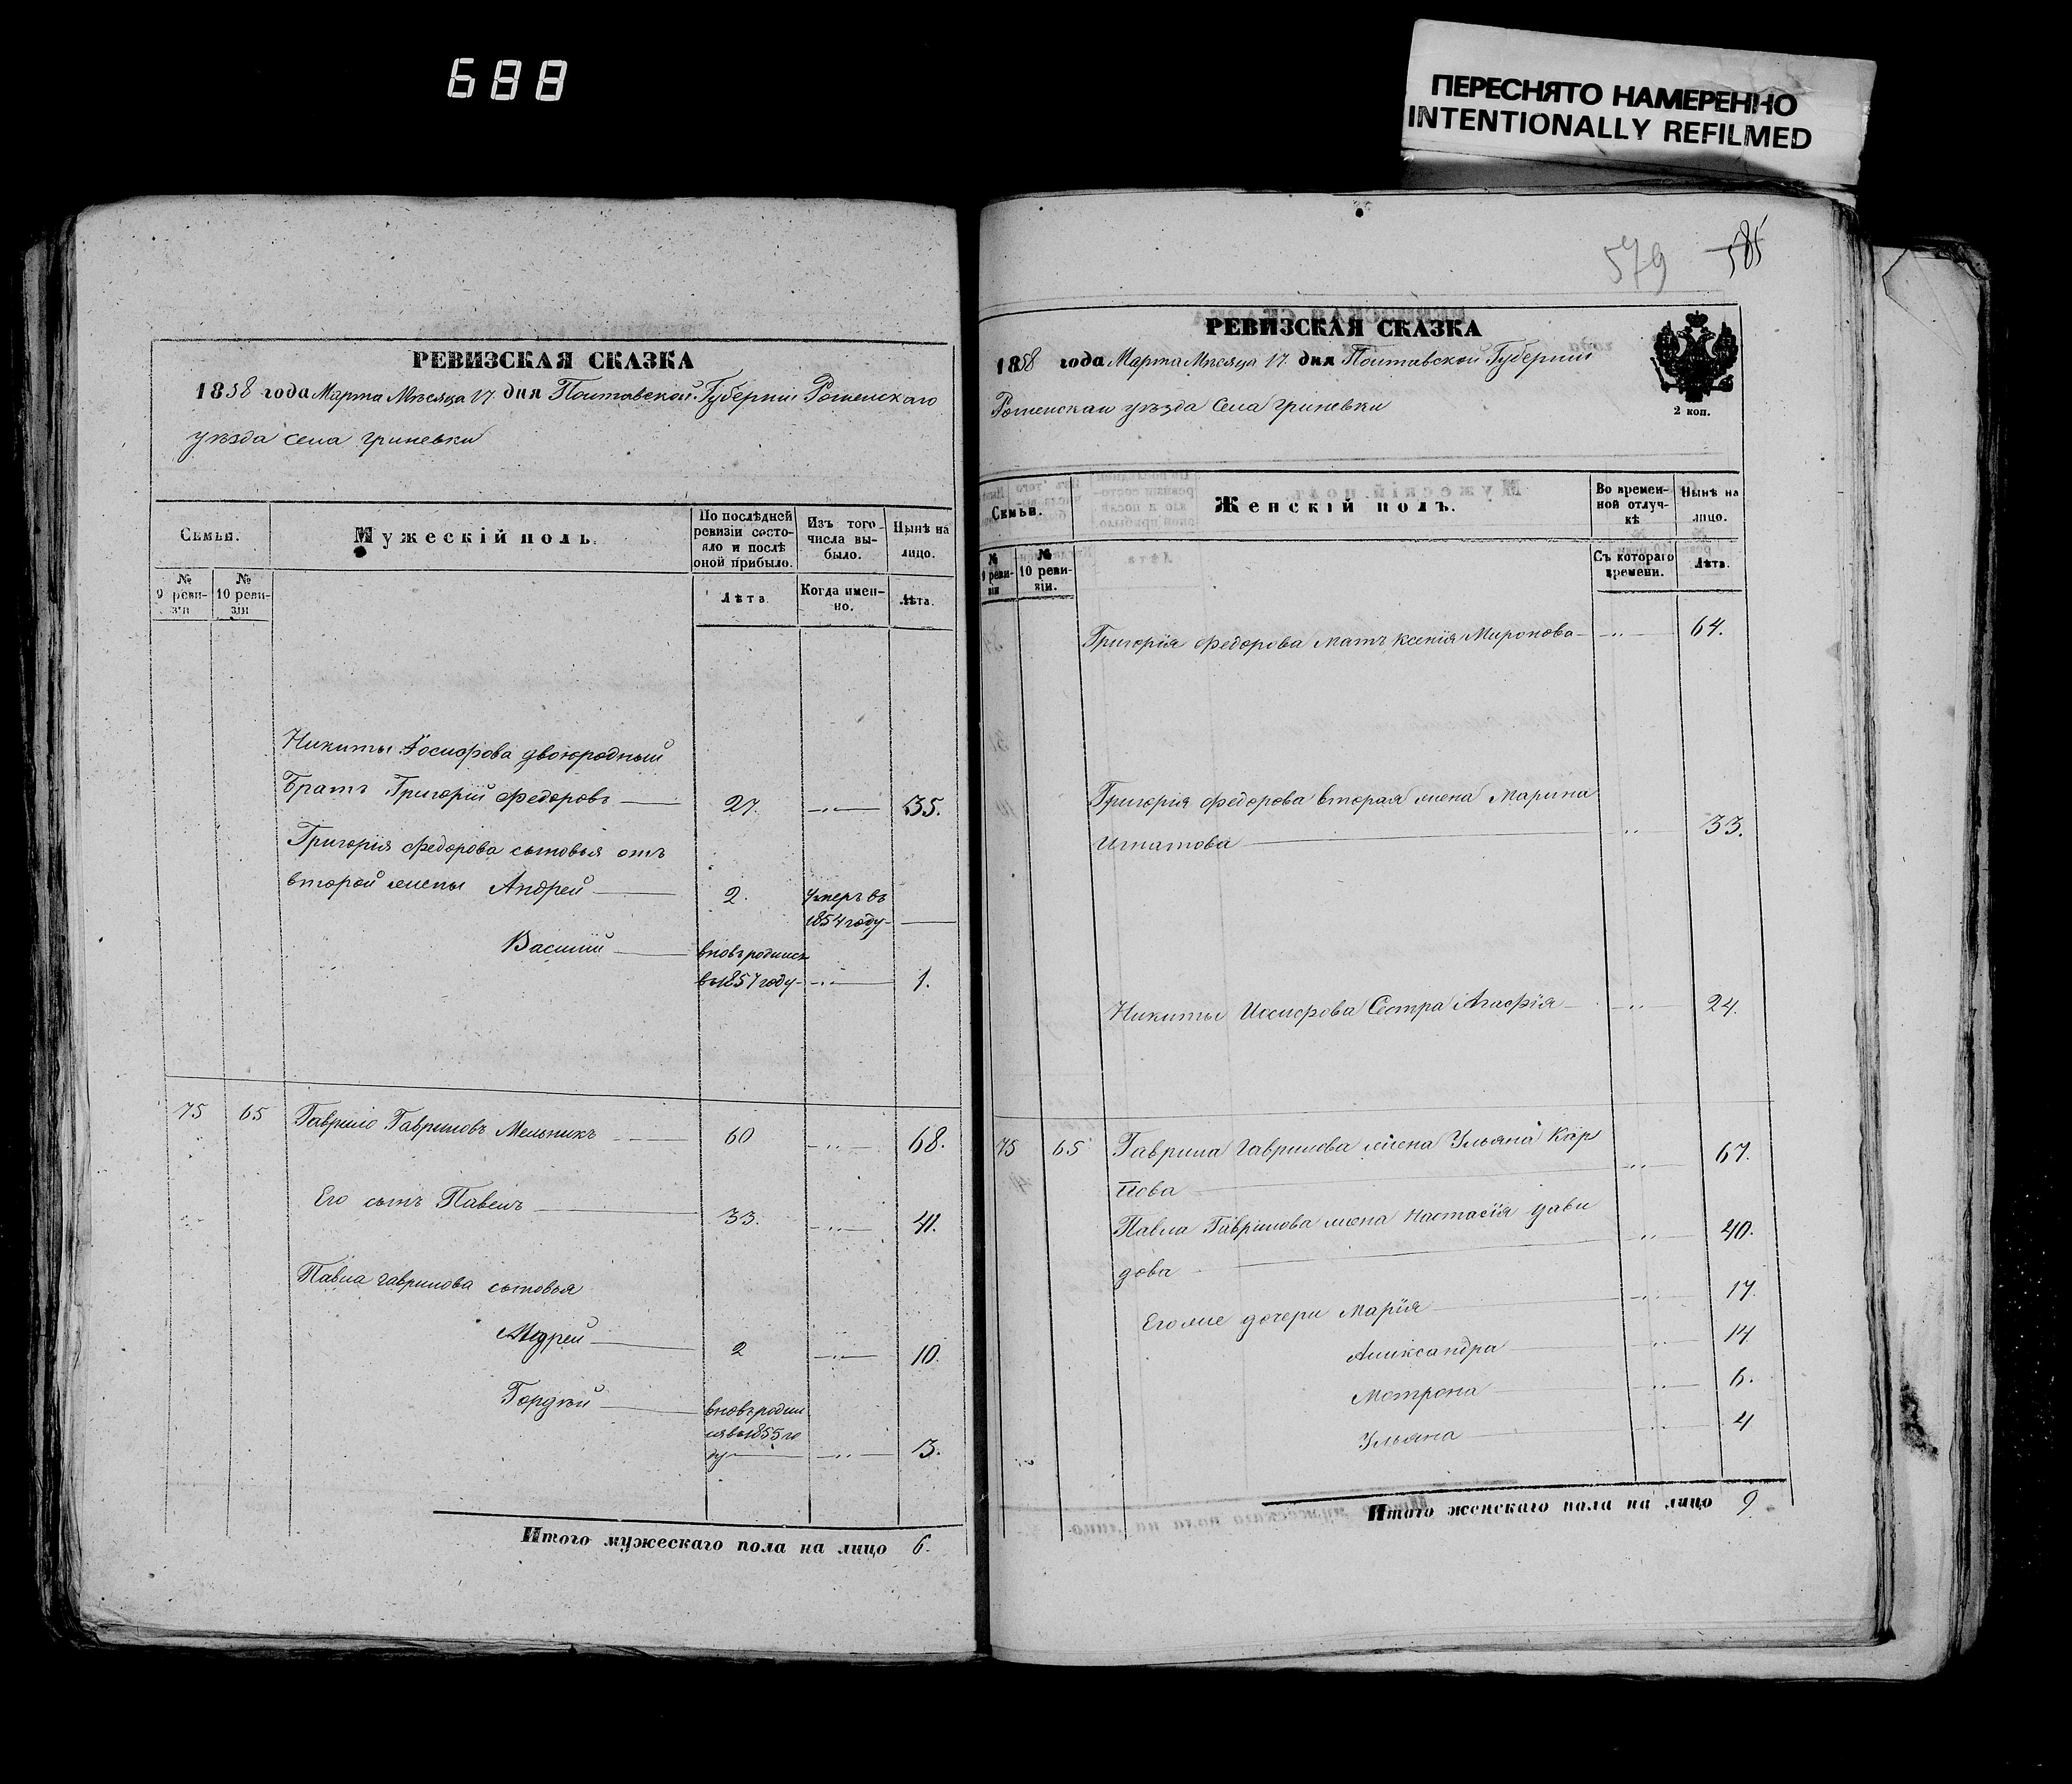 688
ПЕРЕСНЯТО НАМЕРЕННО
INTENTIONALLY REFILMED
РЕВИЗСКАЯ СКАЗКА
1858 года Марта Мѣсяца 17 дня Полтавской Губерніи Роменскаго
уѣзда села Гриневки
Семьи.
Мужескій полъ.
По послѣдней ревизіи состояло и послѣ оной прибыло.
Изъ того числа выбыло.
Нынѣ на лицо.
№ 9 ревизіи
№ 10 ревизіи
Лѣта.
Когда именно.
Лѣта.
Никиты Іосифова двоюродный
Братъ Григорій Федоровъ — 27. —..— 35.
Григорія Федорова сыновья отъ
второй жены Андрей — 2. Умеръ въ
1854 году —
Василій — вновь родился
въ 1857 году —..— 1.
75 65 Гаврило Гавриловъ Мельникъ — 60 —..— 68.
Его сынъ Павелъ — 33. —..— 41.
Павла Гаврилова сыновья
Андрей — 2 —..— 10.
Гордѣй — вновь родил
ся въ 1855 го
ду — —..— 3.
Итого мужескаго пола на лицо 6.
579 585
РЕВИЗСКАЯ СКАЗКА
1858 года Марта Мѣсяца 17 дня Полтавской Губерніи
Роменскаго уѣзда Села Гриневки
2 коп.
Семьи.
Женскій полъ.
Во временной отлучкѣ
Нынѣ на лицо.
№ 9 ревизіи
№ 10 ревизіи.
Съ котораго времени.
Лѣта.
Григорія Федорова мать Ксенія Миронова — —..— 64.
Григорія Федорова вторая жена Марина
Игнатова — .. — 33.
Никиты Иосифова Сестра Агафія — —..— 24.
75 65 Гаврила Гаврилова жена Ульяна Кар
пова — —..— 67.
Павла Гаврилова жена Настасія Дави
дова — —..— 40.
Его же дочери Марія — —..— 17.
Аликсандра — —..— 14.
Мотрона — —..— 6.
Ульяна — —..— 4
Итого женскаго пола на лицо 9